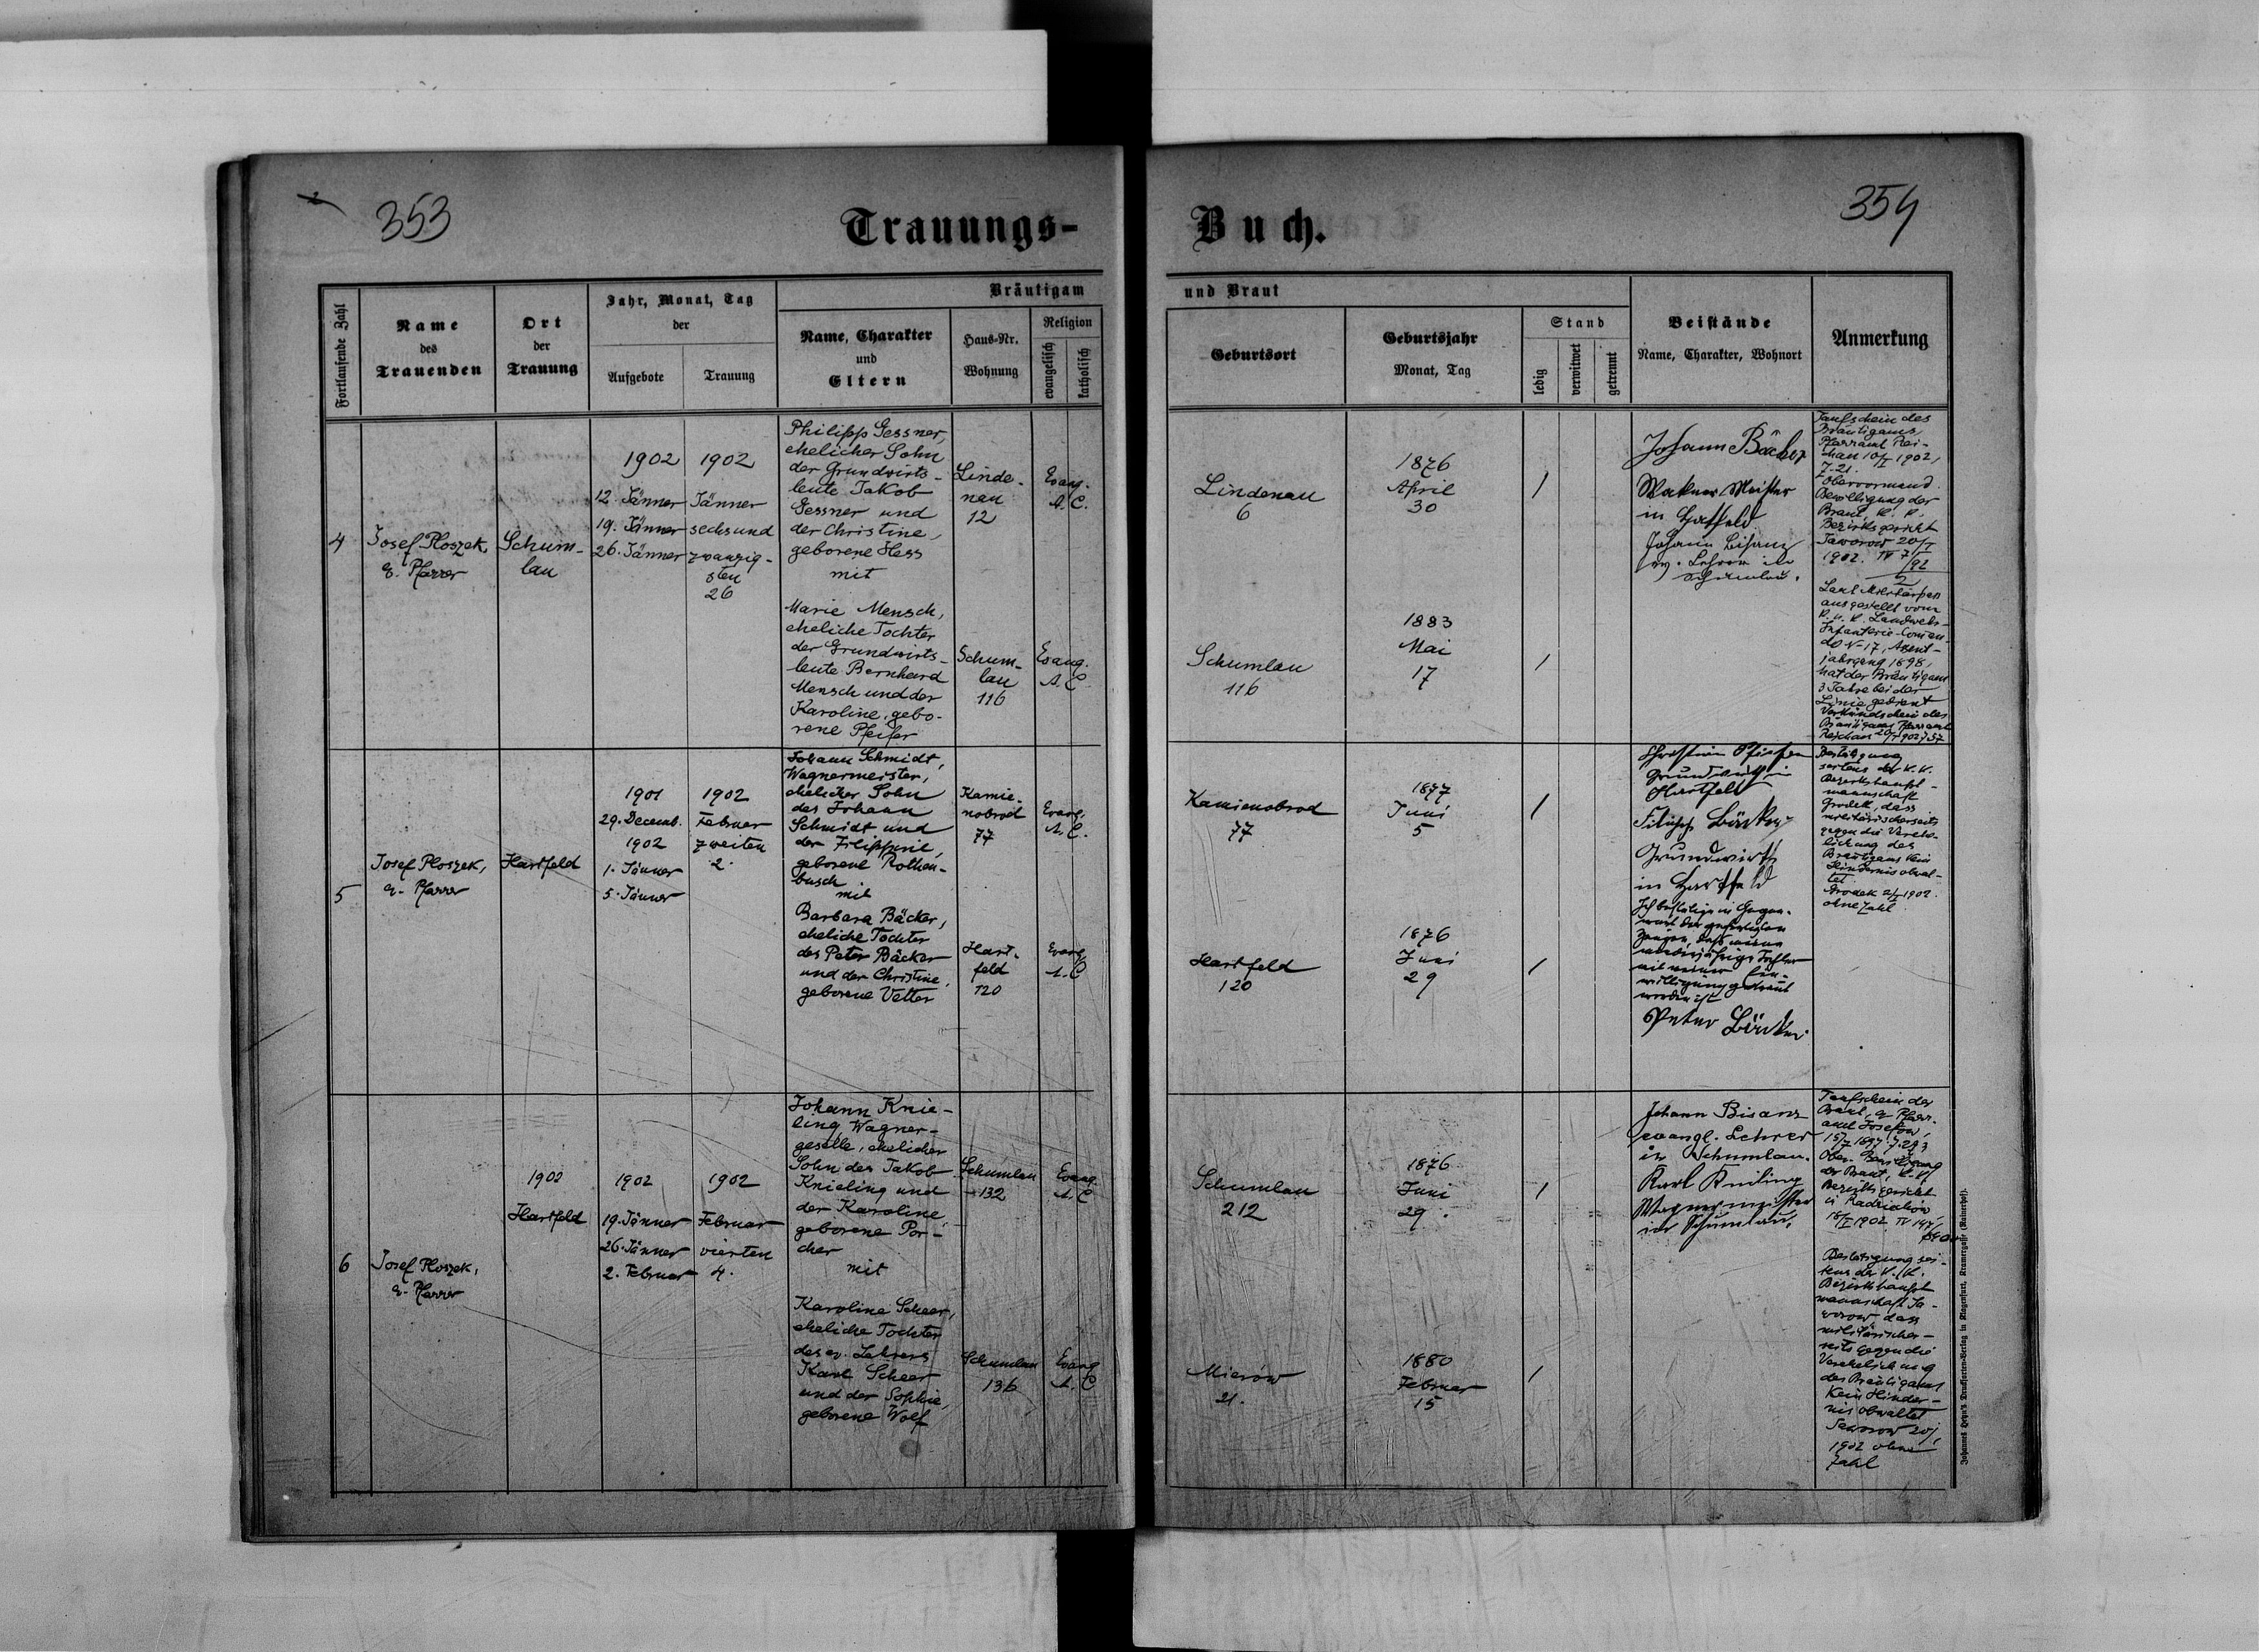 353
Trauungs-
Buch.
354
Fortlaufende Zahl
Name
des
Trauenden
Ort
der
Trauung
Jahr, Monat, Tag
der
Aufgebote
Trauung
Bräutigam
und Braut
Name, Charakter
und
Eltern
Haus-Nr.
Wohnung
Religion
evangelisch
katholisch
Geburtsort
Geburtsjahr
Monat, Tag
Stand
ledig
verwitwet
getrennt
Beistände
Name, Charakter, Wohnort
Anmerkung
4
Josef Ploszek,
e. Pfarrer
Schum-
lau
1902
12. Jänner
19. Jänner
26. Jänner
1902
Jänner
sechsund
zwanzig-
sten
26
Philipp Gessner,
ehelicher Sohn
der Grundwirts-
leute Jakob
Gessner und
der Christine,
geborene Hess
mit
Marie Mensch,
eheliche Tochter
der Grundwirts-
leute Bernhard
Mensch und der
Karoline, gebo-
rene Pfeifer
Linde-
nau
12
Evang.
A. C.
Schum-
lau
116
Evang.
A. C.
Lindenau
6
1876
April
30
/
Schumlau
116
1883
Mai
17
/
Johann Bäcker
Meister
in Hartfeld
Johann Bisanz
ev. Lehrer in
Schumlau.
Taufschein des
Bräutigams,
Pfarramt Rei-
chau 10/I 1902,
Z. 21.
Obervormund.
Bewilligung der
Braut, k. k.
Bezirksgericht
Jaworow 20/I
1902. IV 7/92
2
Laut Militärpass
ausgestellt vom
k. u. k. Landwehr-
Infanterie-Coman-
do N-17, Assent-
jahrgang 1898,
hat der Bräutigam
3 Jahre bei der
Linie gedient
Verkündschein des
Bräutigams Pfarramt
Reichau
5
Josef Ploszek,
e. Pfarrer
Hartfeld
1901
29. Decemb.
1902
1. Jänner
5. Jänner
1902
Februar
zweiten
2.
Johann Schmidt,
Wagnermeister,
ehelicher Sohn
des Johann
Schmidt und
der Filippine,
geborene Rothen-
busch
mit
Barbara Bäcker,
eheliche Tochter
des Peter Bäcker
und der Christine,
geborene Vetter
Kamie-
nobrod
77
Evang.
A. C.
Hart-
feld
120
Evang.
A. C
Kamienobrod
77
1877
Juni
5
/
Hartfeld
120
1876
Juni
29
/
Grundwirth in
Hartfeld
Filipp Bäcker
Grundwirth
in Hartfeld
Ich bestätige in Gegen-
wart der gefertigten
Zeugen, daß meine
minderjährige Tochter
mit meiner Ein-
willigung getraut
worden ist
Peter Bäcker
Bestätigung
seitens der k. k.
Bezirkshaupt-
mannschaft
Grodek, dass
militärischerseits
gegen die Verehe-
lichung des
Bräutigams kein
Hindernis obwal-
tet.
Grodek 2/I 1902.
ohne Zahl
6
Josef Ploszek,
e. Pfarrer
1902
Hartfeld
1902
19. Jänner
26. Jänner
2. Februar
1902
Februar
vierten
4.
Johann Knie-
ling, Wagner-
geselle, ehelicher
Sohn des Jakob
Knieling und
der Karoline,
geborene Por-
cher
mit
Karoline Scheer,
eheliche Tochter
des ev. Lehrers
Karl Scheer
und der Sophie,
geborene Wolf
Schumlau
132
Evang.
A. C
Schumlau
136
Evang
A. C
Schumlau
212
1876
Juni
29.
/
Mierów
21.
1880
Februar
15
/
Johann Bisanz
evangl. Lehrer
in Schumlau.
Karl Knieling
Wagnermeister
in Schumlau.
Taufschein der
Braut, e. Pfarr-
amt Josefow,
Ober. Bewilligung
der Braut, k. k.
Bezirksgericht
in Radziechów,
18/I 1902. IV
Bestätigung sei-
tens der k. k.
Bezirkshaupt
mannschaft Ja-
worow dass
militärischer-
seits gegen die
Verehelichung
des Bräutigams
kein Hinder-
nis obwaltet
Jaworow 20/1
1902 ohne
Zahl
Johannes Heyn's Drucksorten-Verlag in Klagenfurt, Kramergasse (Rainerhof).